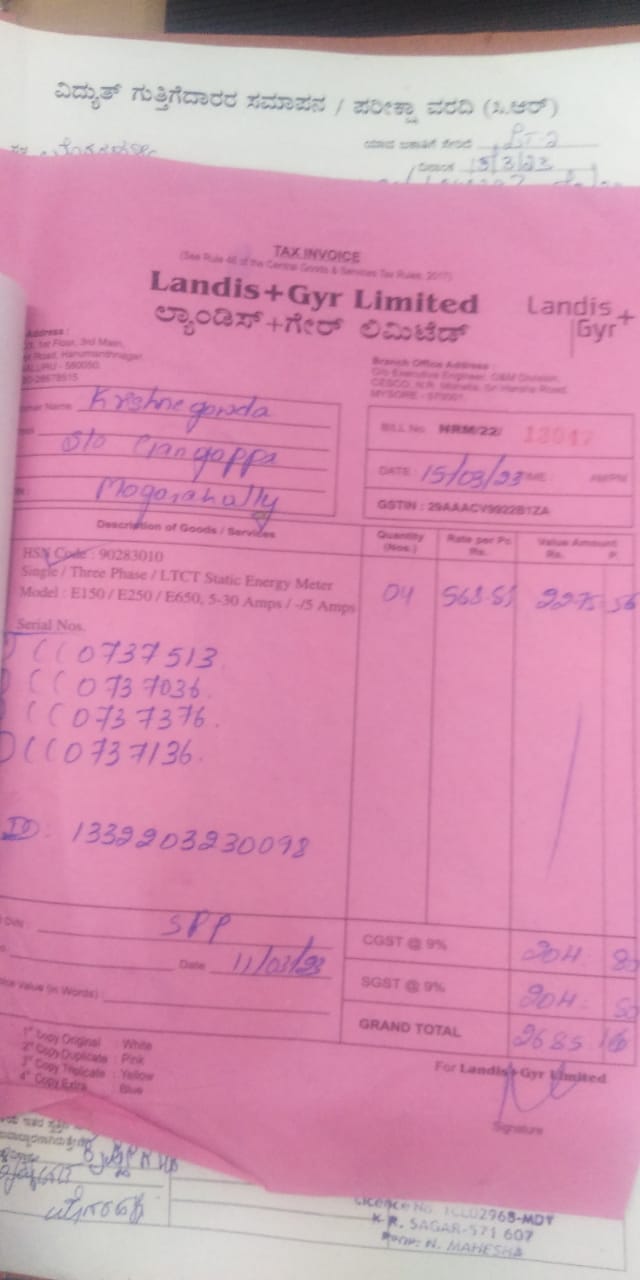 ವಿದ್ಯುತ್ ಗುತ್ತಿಗೆದಾರರ ಸಮಾಪನ / ಪರೀಕ್ಷಾ ವರದಿ (ಸಿ.ಆರ್)
LT-2
ದಿನಾಂಕ 15/3/23
TAX INVOICE
(See Rule 46 of the Central Goods & Services Tax Rules, 2017)
Landis+Gyr Limited
ಲ್ಯಾಂಡಿಸ್+ಗೇರ್ ಲಿಮಿಟೆಡ್
Landis+
Gyr
Address :
1st Floor, 3rd Main,
Road, Hanumanthnagar
- 560050
Branch Office Address :
C/o Executive Engineer, O&M Division,
CESCO, N.R. Mohalla, Sri Harsha Road,
MYSORE - 570001
Name Krishnegowda
S/o Gangappa
Mogarahally
BILL No. NRM/22/ 13017
DATE : 15/03/23 TIME : AM/PM
GSTIN : 29AAACV9922B1ZA
Description of Goods / Services
Quantity (Nos.)
Rate per Pc Rs.
Value Amount Rs. P.
HSN Code : 90283010
Single / Three Phase / LTCT Static Energy Meter
Model : E150 / E250 / E650, 5-30 Amps / -/5 Amps
04 2275
Serial Nos.
CC0737513
CC0737036
CC0737376
CC0737136
ID: 1332203230098
SPP
Date 11/03/23
Value (in Words) :
CGST @ 9% 204
SGST @ 9% 204
GRAND TOTAL 2685 16
1st Copy Original : White
2nd Copy Duplicate : Pink
3rd Copy Triplicate : Yellow
4th Copy Extra : Blue
For Landis+Gyr Limited
Signature
Licence No. 1CL02968-MDY
K.R. SAGAR-571 607
Prop: N. MAHESHA